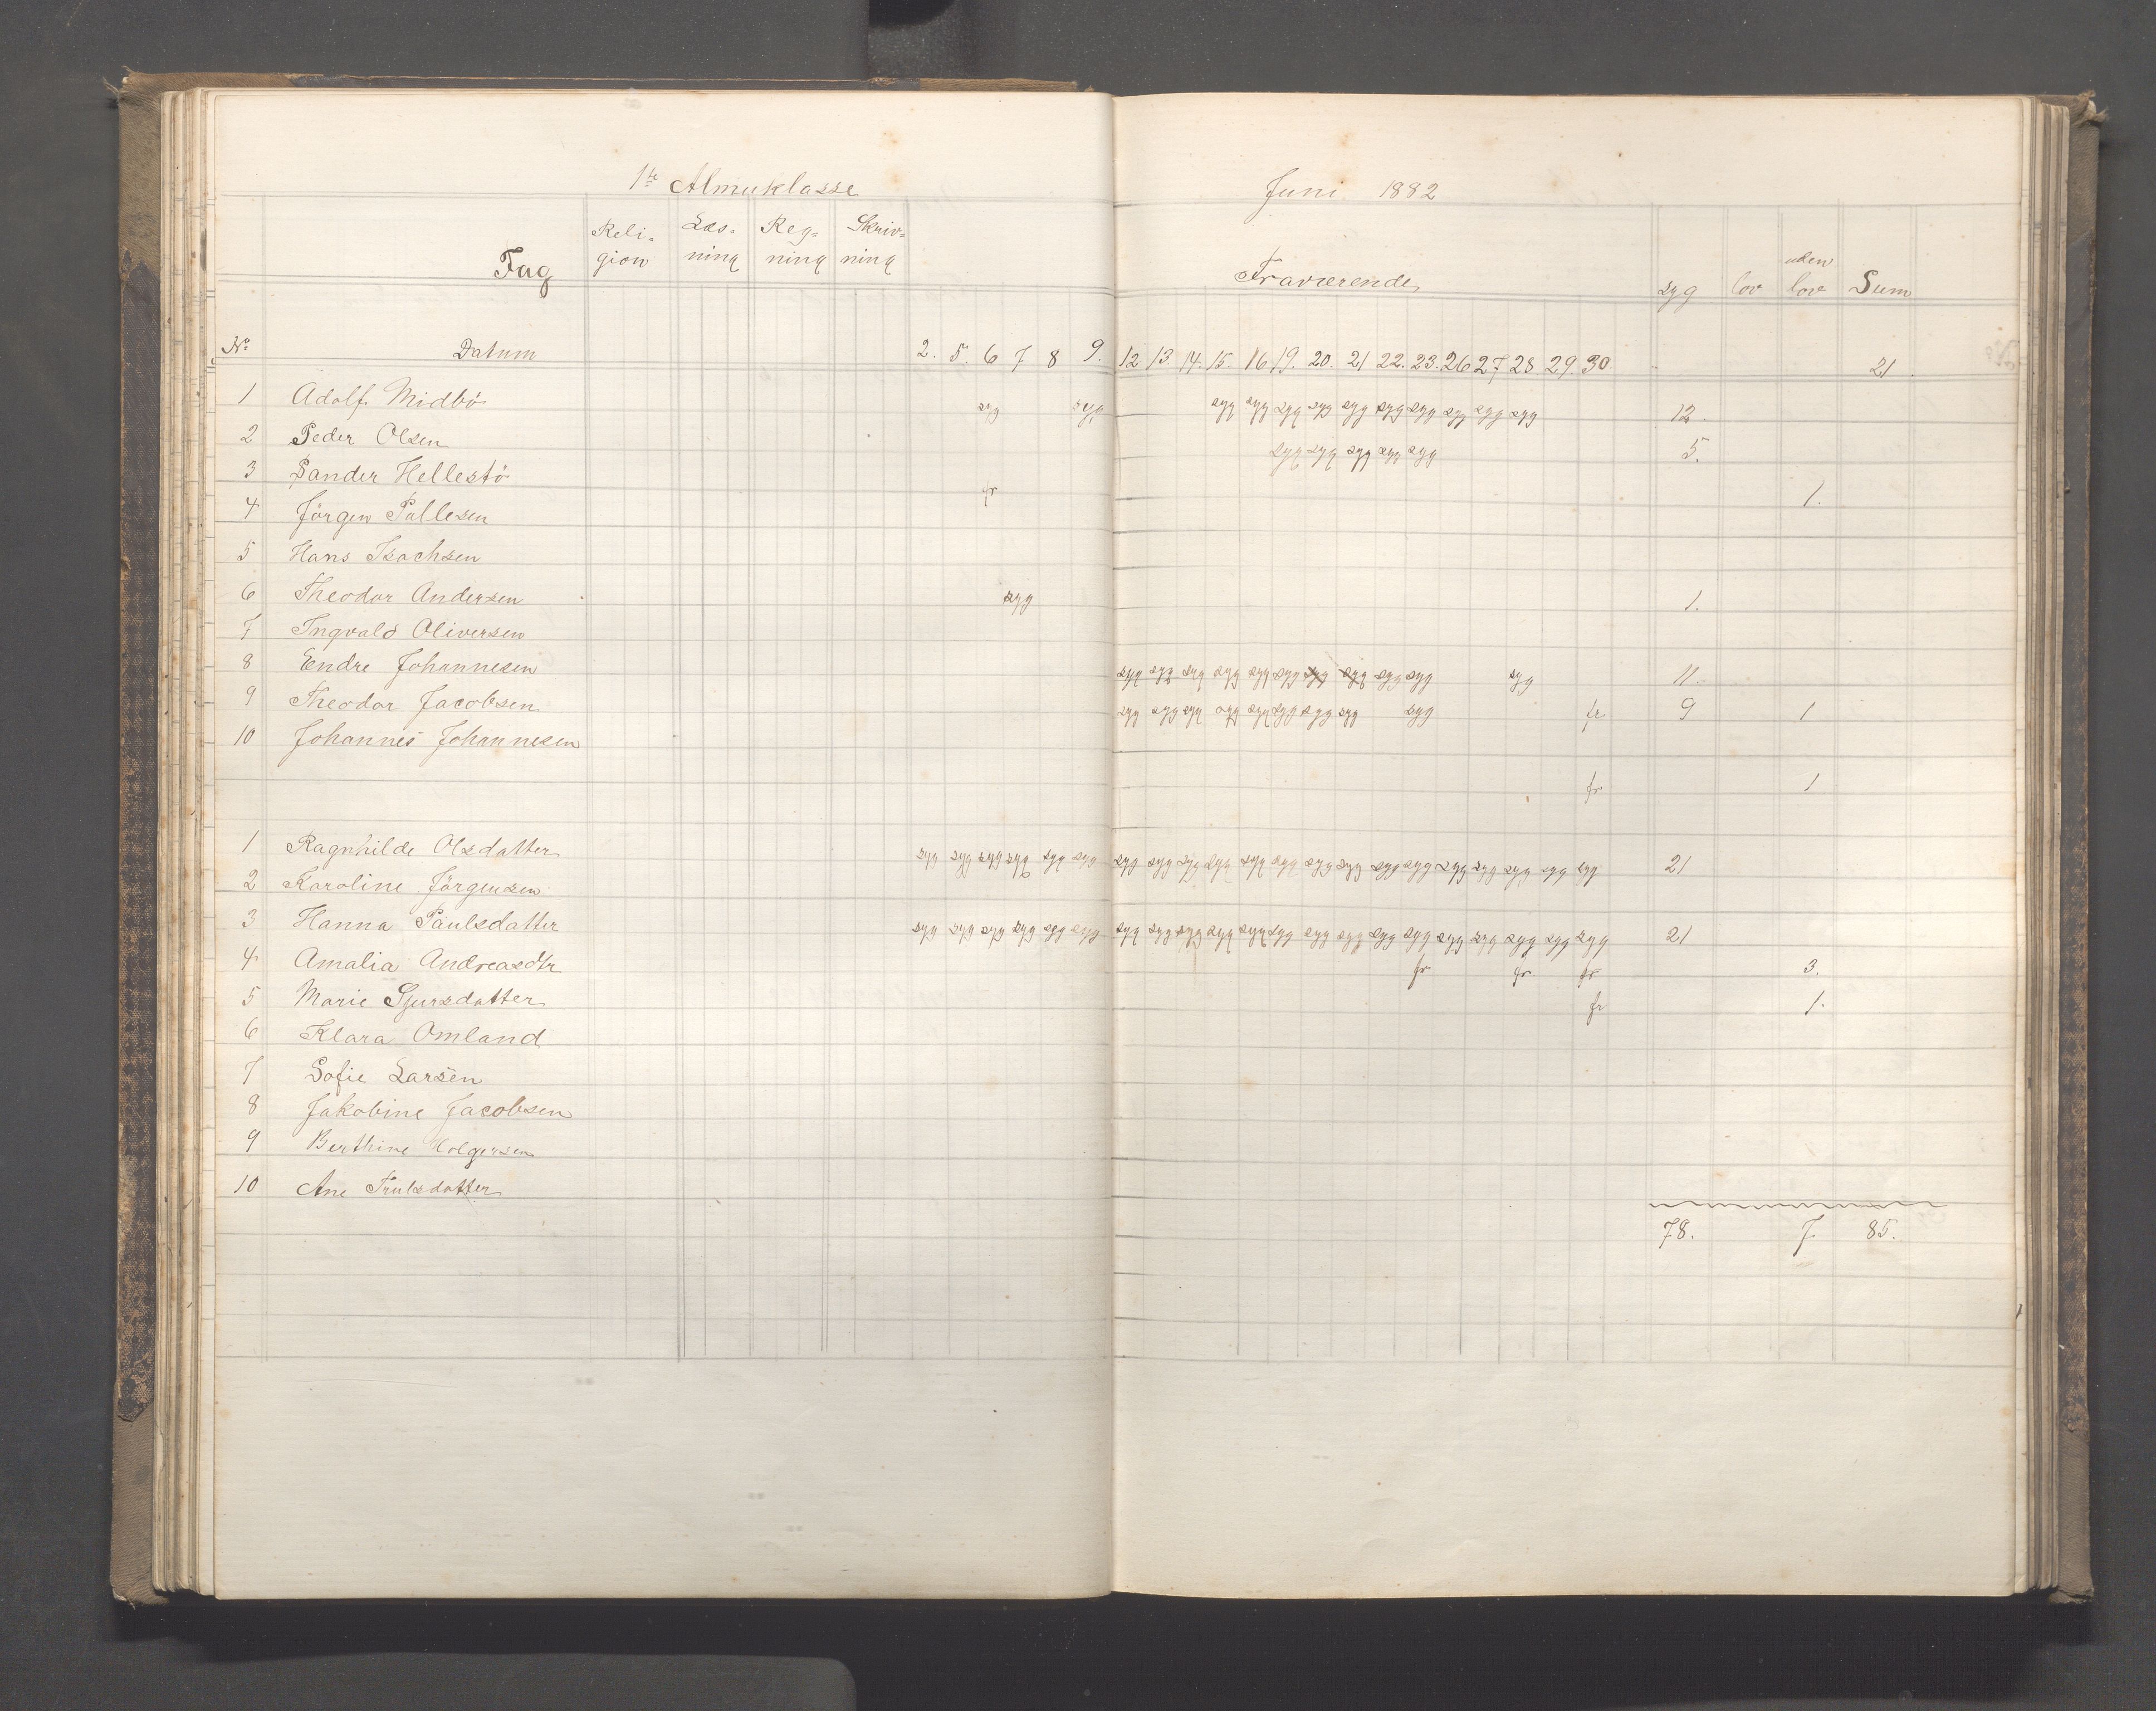 1ste Almuklasse
Juni 1882
Fag Reli- gion Læs- ning Reg- ning Skriv- ning Fraværende syg lov uden lov Sum
No Datum 2. 5. 6 7 8 9. 12 13. 14. 15. 16 19. 20. 21 22. 23. 26 27 28 29. 30 21
1 Adolf Midbö syg syg syg syg syg syg syg syg syg syg syg syg 12.
2 Peder Olsen syg syg syg syg syg 5.
3 Sander Hellestö fr 1.
4 Jörgen Pallesen
5 Hans Isachsen
6 Theodor Andersen syg 1.
7 Ingvald Oliversen
8 Endre Johannesen syg syg syg syg syg syg syg syg syg syg syg 11.
9 Theodor Jacobsen syg syg syg syg syg syg syg syg syg fr 9 1
10 Johannes Johannesen
fr 1
1 Ragnhilde Olsdatter syg syg syg syg syg syg syg syg syg syg syg syg syg syg syg syg syg syg syg syg syg 21
2 Karoline Jörgensen
3 Hanna Paulsdatter syg syg syg syg syg syg syg syg syg syg syg syg syg syg syg syg syg syg syg syg syg 21
4 Amalia Andreasdtr fr fr fr 3.
5 Marie Sjursdatter fr 1.
6 Klara Omland
7 Sofie Larsen
8 Jakobine Jacobsen
9 Berthine Holgersen
10 Ane Trulsdatter
78. 7. 85.